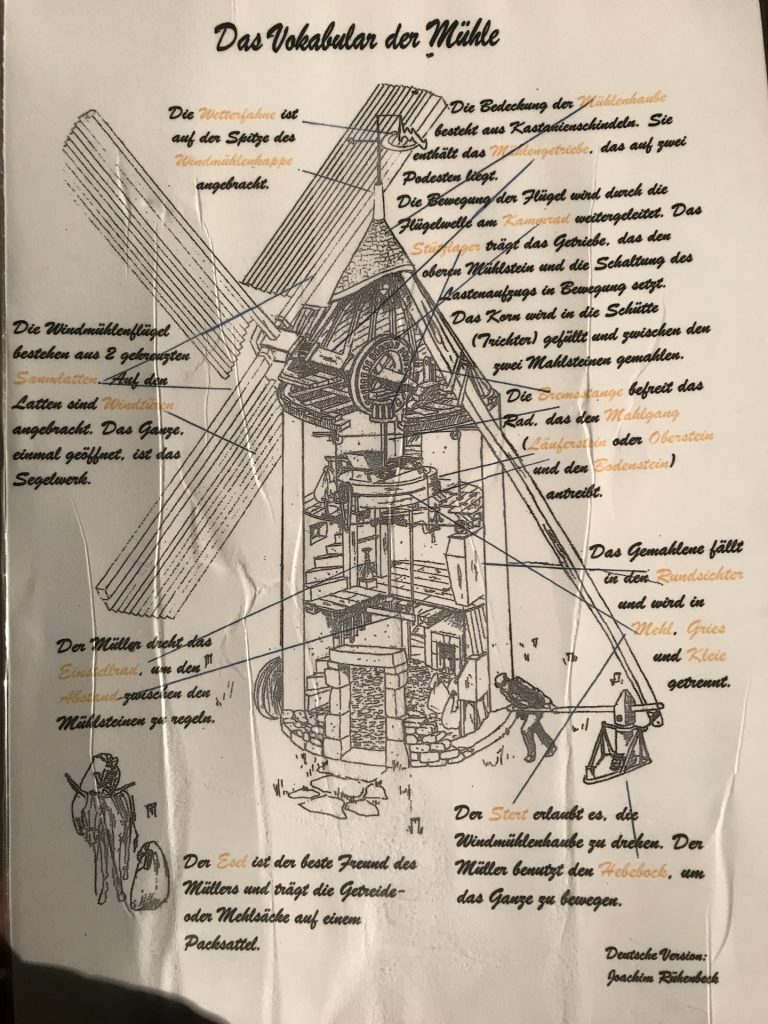 Das Vokabular der Mühle
Die Wetterfahne ist
auf der Spitze des
Windmühlenkappe
angebracht.
Die Bedeckung der Mühlenhaube
besteht aus Kastanienschindeln. Sie
enthält das Mühlengetriebe, das auf zwei
Podesten liegt.
Die Bewegung der Flügel wird durch die
Flügelwelle am Kammrad weitergeleitet. Das
Stützlager trägt das Getriebe, das den
oberen Mühlstein und die Schaltung des
Lastenaufzugs in Bewegung setzt.
Das Korn wird in die Schütte
(Trichter) gefüllt und zwischen den
zwei Mahlsteinen gemahlen.
Die Windmühlenflügel
bestehen aus 2 gekreuzten
Saumlatten. Auf den
Latten sind Windtüren
angebracht. Das Ganze,
einmal geöffnet, ist das
Segelwerk.
Die Bremsstange befreit das
Rad, das den Mahlgang
(Läuferstein oder Oberstein
und den Bodenstein)
antreibt.
Das Gemahlene fällt
in den Rundsichter
und wird in
Mehl, Gries
und Kleie
getrennt.
Der Müller dreht das
Einstellrad, um den
Abstand zwischen den
Mühlsteinen zu regeln.
Der Stert erlaubt es, die
Windmühlenhaube zu drehen. Der
Müller benutzt den Hebebock, um
das Ganze zu bewegen.
Der Esel ist der beste Freund des
Müllers und trägt die Getreide-
oder Mehlsäcke auf einem
Packsattel.
Deutsche Version:
Joachim Rühenbeck